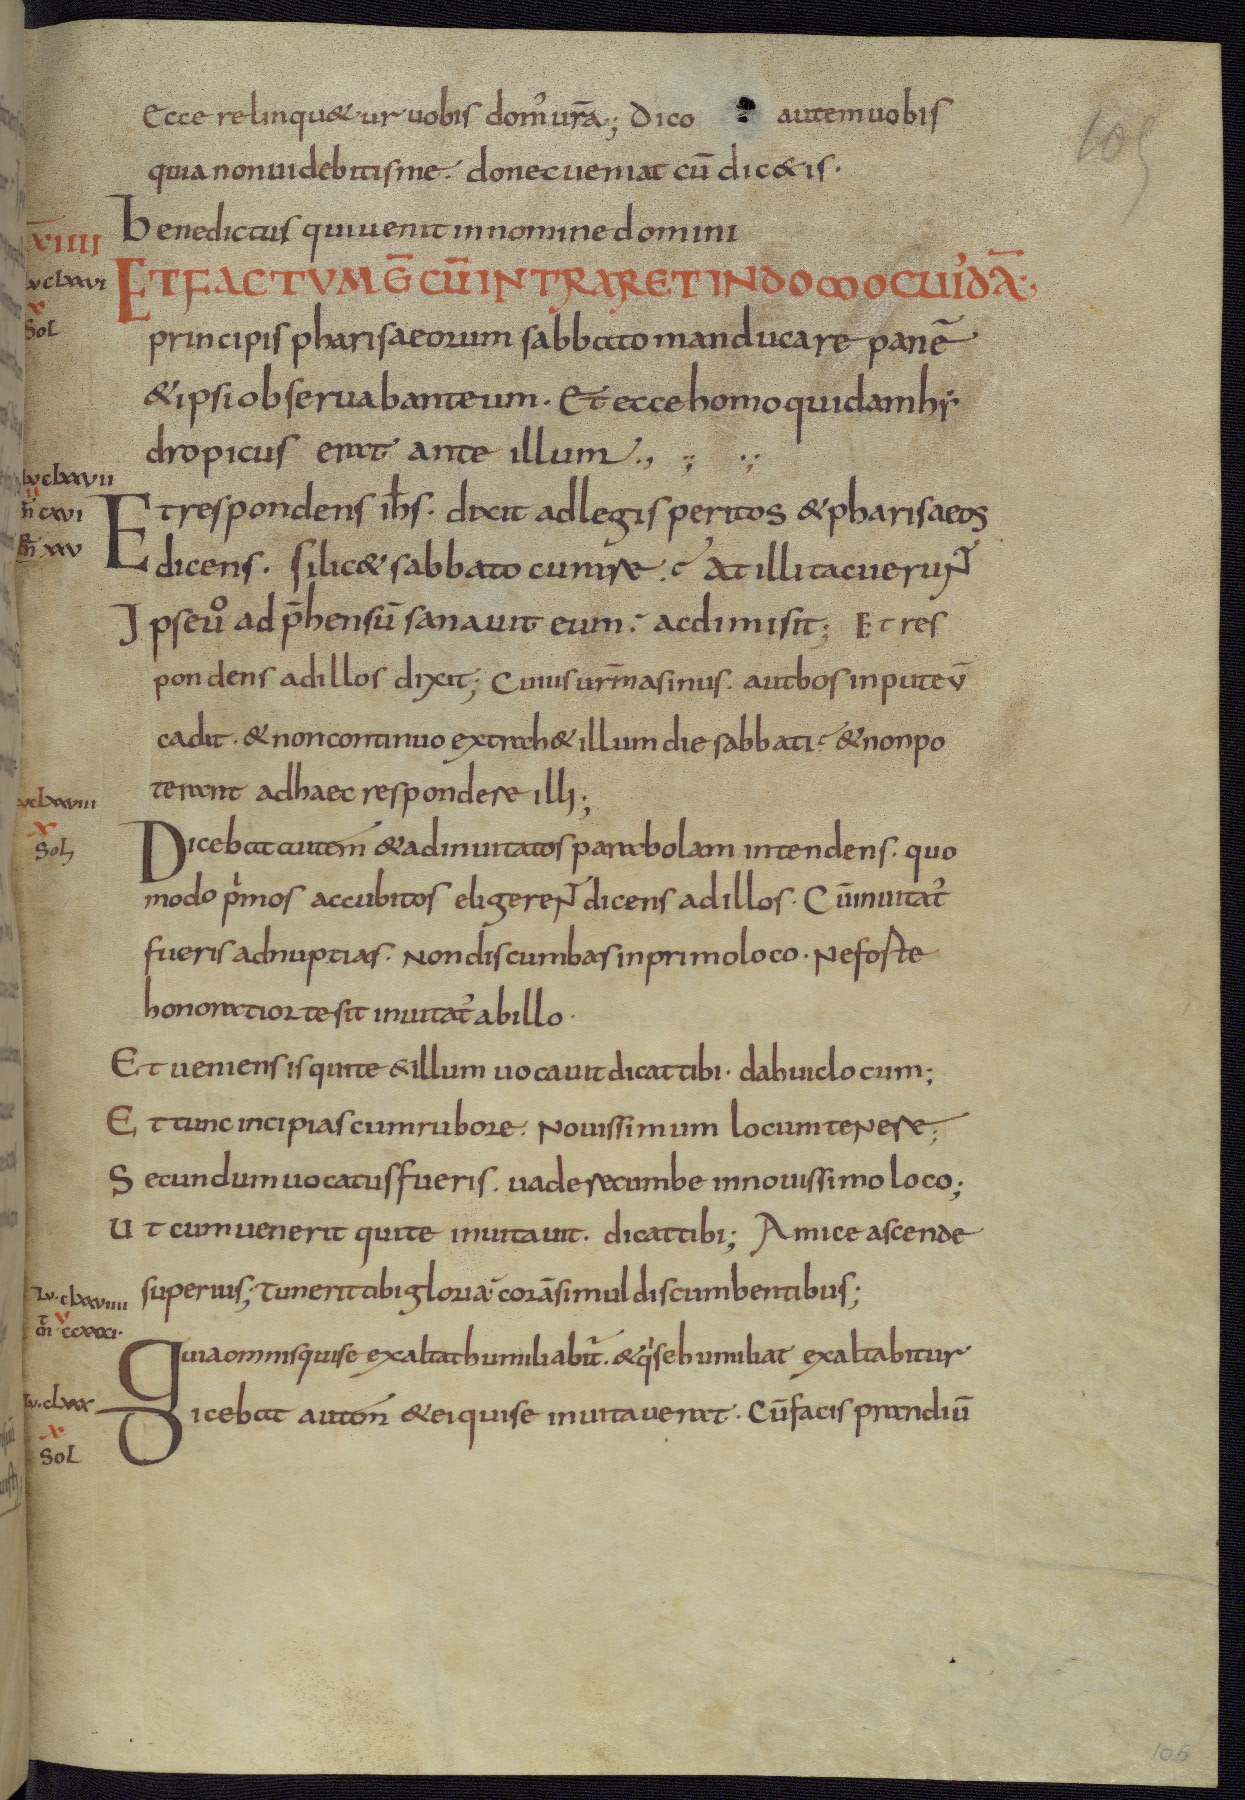 105
Ecce relinqu&ur uobis dom' urā; Dico autem uobis
quia non uidebitis me. donec ueniat cū dic&is.
Benedictus qui uenit in nomine domini
XIIII
ET FACTVM Ē CŪ INTRARET IN DOMO CUI'DĀ.
lu clxxvi
x
Sol
principis pharisaeorum sabbato manducare panē
& ipsi obseruabant eum. Et ecce homo quidam hy
dropicus erat ante illum.,
lu clxxvii
ii
m cxvi
m xxv
Et respondens ihs. dixit ad legis peritos & pharisaeos
dicens. si lic& sabbato curare. At illi tacuerunt
Ipse uo adp̄hensū sanauit eum. ac dimisit; Et res
pondens ad illos dixit; Cuius urm asinus. aut bos in puteū
cadit. & non continuo extrah& illum die sabbati. & non po
terant ad haec respondere illi;
lu clxxviii
x
Sol
Dicebat autem & ad inuitatos parabolam intendens. quo
modo pimos accubitos eligerent dicens ad illos. Cū inuitat'
fueris ad nuptias. Non discumbas in primo loco. Ne foste
honoratior te sit inuitat' ab illo.
Et ueniens is qui te & illum uocauit dicat tibi. da huic locum;
Et tunc incipias cum rubore. Nouissimum locum tenere;
Secundum uocatus fueris. uade recumbe in nouissimo loco;
Ut cum uenerit qui te inuitauit. dicat tibi; Amice ascende
superius; Tunc erit tibi gloria corā simul discumbentibus;
lu. clxxviiii
v
m ccxxxi.
Quia omnis qui se exaltat humiliabit'. & qi se humiliat exaltabitur
lu. clxxx
x
Sol
Dicebat autem & ei qui se inuitauerat. Cū facis prandiū
105